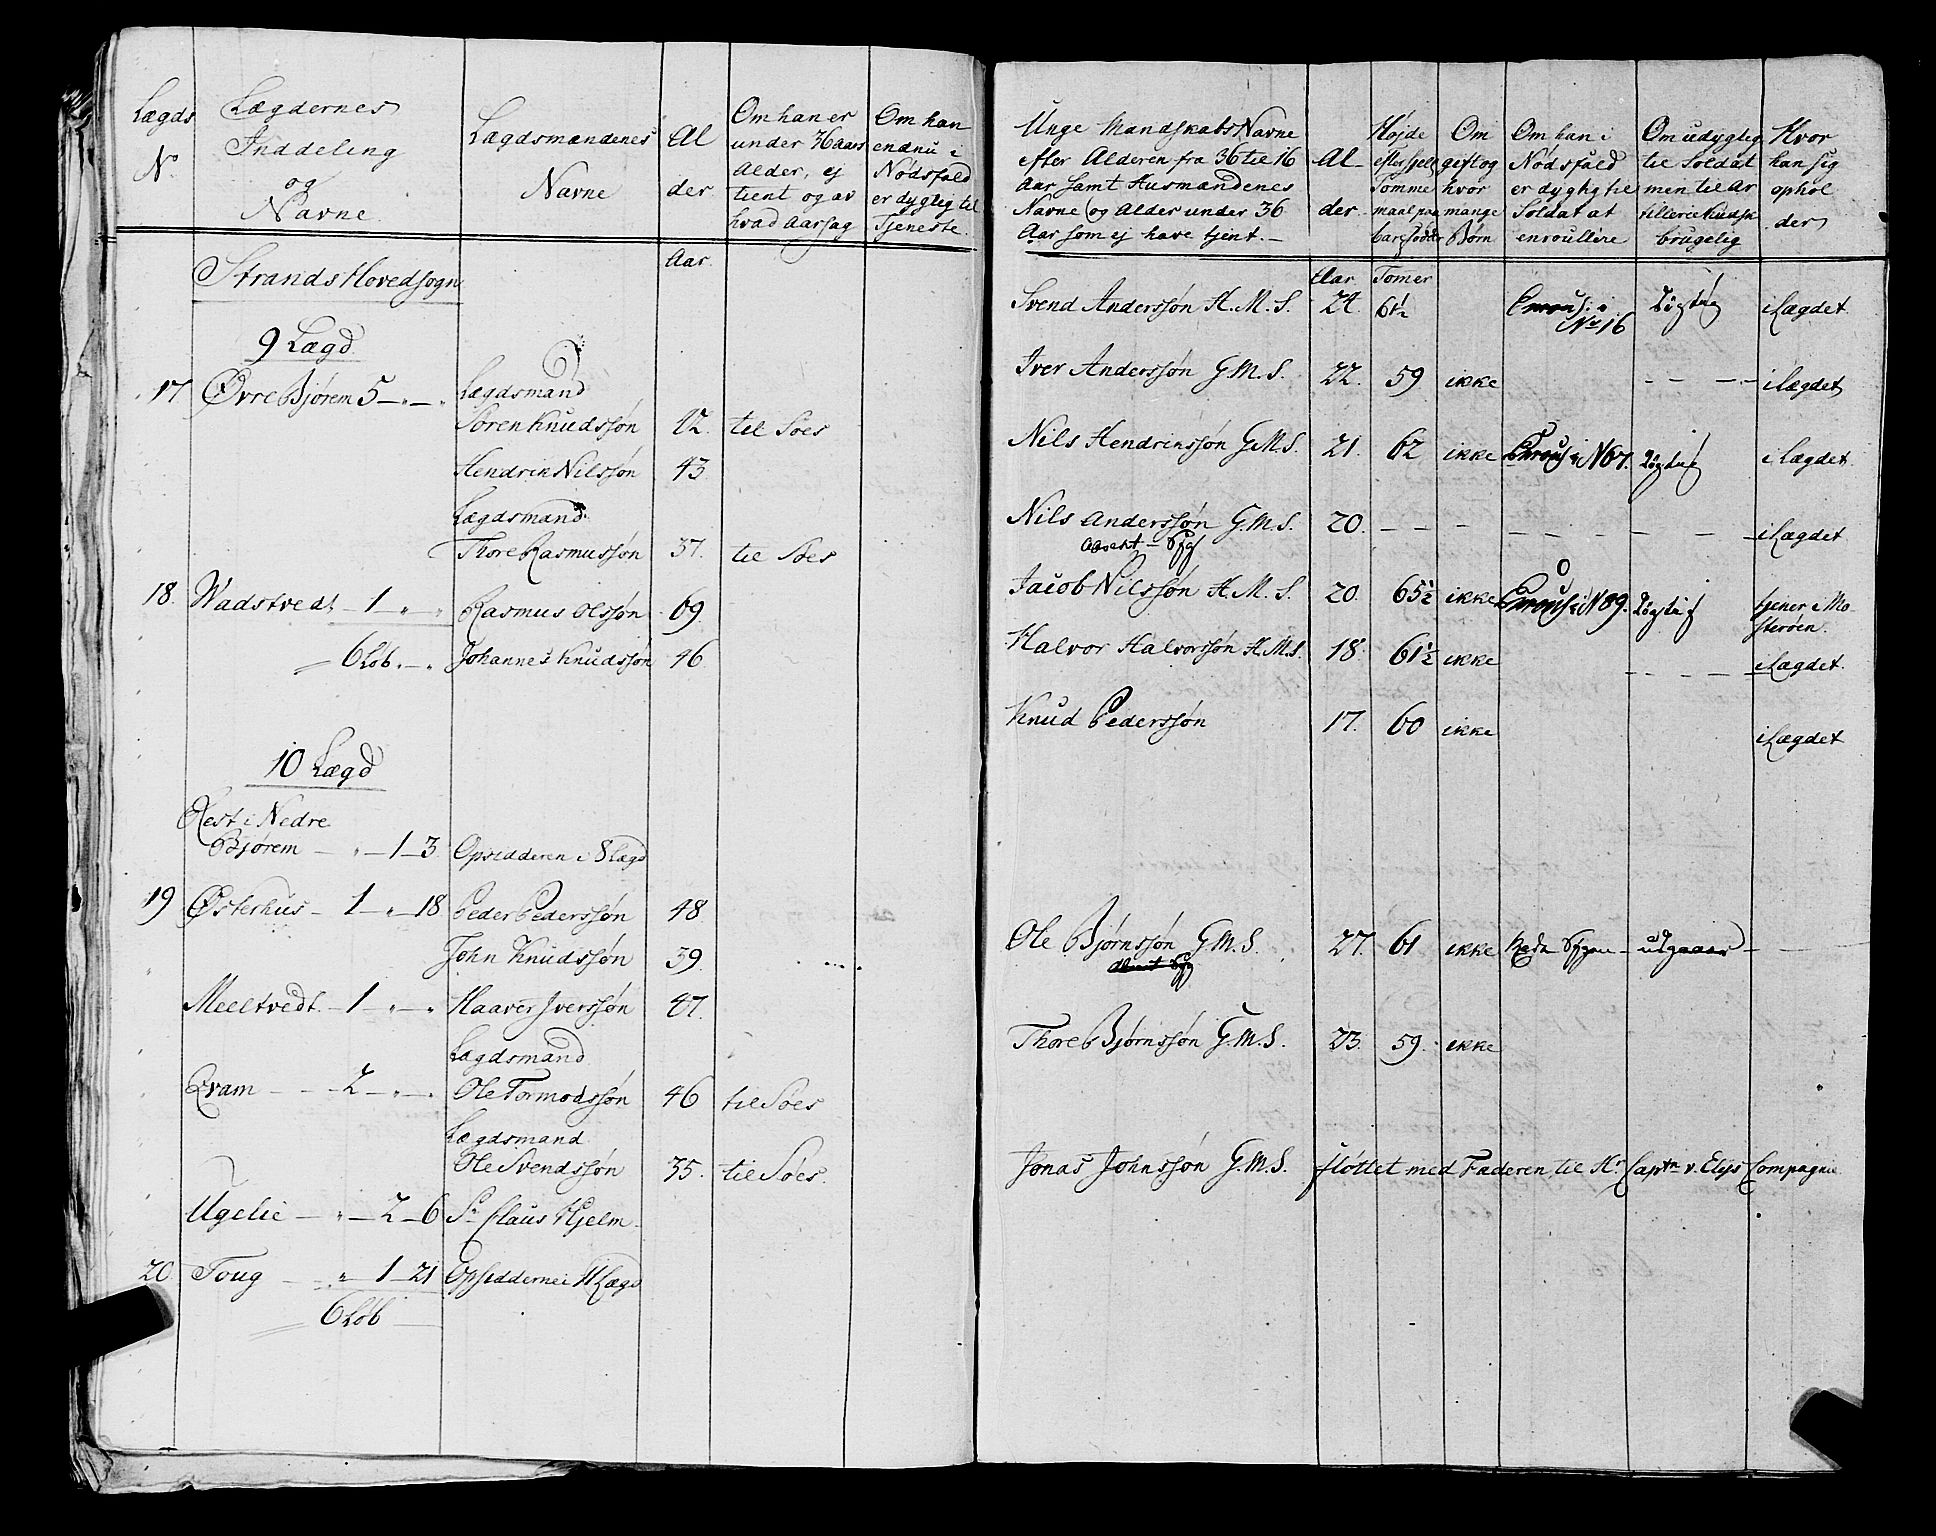 Lægds
No
Lægdernes
Inddeling
og
Navne
Lægdsmændenes
Navne
Al
der
Om han er
under 36 aars
Alder, ej
tient og av
hvad Aarsag
Om han
endnu i
Nødsfald
er dygtig til
Tjeneste
Strands Hovedsogn
Aar
9 Lægd
17 Øvre Bjørem 5 — " — " Lægdsmand
Søren Knudssøn 42. til Søes
Hendrik Nilssøn 43
Lægdsmand
Thore Rasmussøn 37. til Søes
18. Wadstvedt — 1 " " Rasmus Olssøn 69.
6 Løb " — " Johannes Knudssøn 46
10 Lægd
Rest i Nedre
Bjørem — " — 1 — 3 Opsidderen i 8 Lægd
19 Østerhus — 1 — " — 18 Peder Pederssøn 48
John Knudssøn 39.
Meeltvedt — 1 — " — " Haaver Iverssøn 47.
Lægdsmand
Qvam — — 2 — " — " Ole Tormodssøn 46 til Søes
Lægdsmand
Ole Svendssøn 35. til Søes.
Ugelie — " — 2 — 6 Sr Claus Hjelm
20 Toug — " 1 — 21 Opsidderne i 11 Lægd
6 Løb
Unge Mandskabs Navne
efter Alderen fra 36 til 16
Aar samt Husmændenes
Navne og Alder under 36
Aar som ej have tjent. —
Al-
der
Højde
Tomme
maal paa
Om
gift og
hvor
mange
Børn
Om han i
Nødsfald
er dygtig til
Soldat at
enroullere
Om udygtig
til Soldat
men til Ar
tillerie Kudsk
brugelig
Hvor
han sig
ophol
der
Aar Tomer
Svend Anderssøn H. M. S. 24. 61½ No 16 i Lægdet
Iver Anderssøn G. M. S. 22. 59 ikke — — — — i Lægdet
Nils Hendrikssøn G. M. S. 21. 62 ikke i N 67. i Lægdet
Nils Anderssøn G. M. S. 20. — — — — — — — — — i Lægdet
Absent — Syg
Jacob Nilssøn H. M. S. 20. 65½ ikke i N 89. tjener i Mo
sterøen.
Halvor Halvorssøn H. M. S. 18. 61½ ikke — — — — i Lægdet
Knud Pederssøn 17. 60 ikke i Lægdet
Ole Bjørnssøn G. M. S. 27. 61 ikke udgaaer —
Thore Bjørnssøn G. M. S. 23. 59. ikke
Jonas Johnssøn G. M. S. fløttet med Faderen til Hr Captn v. Elys Compagnie